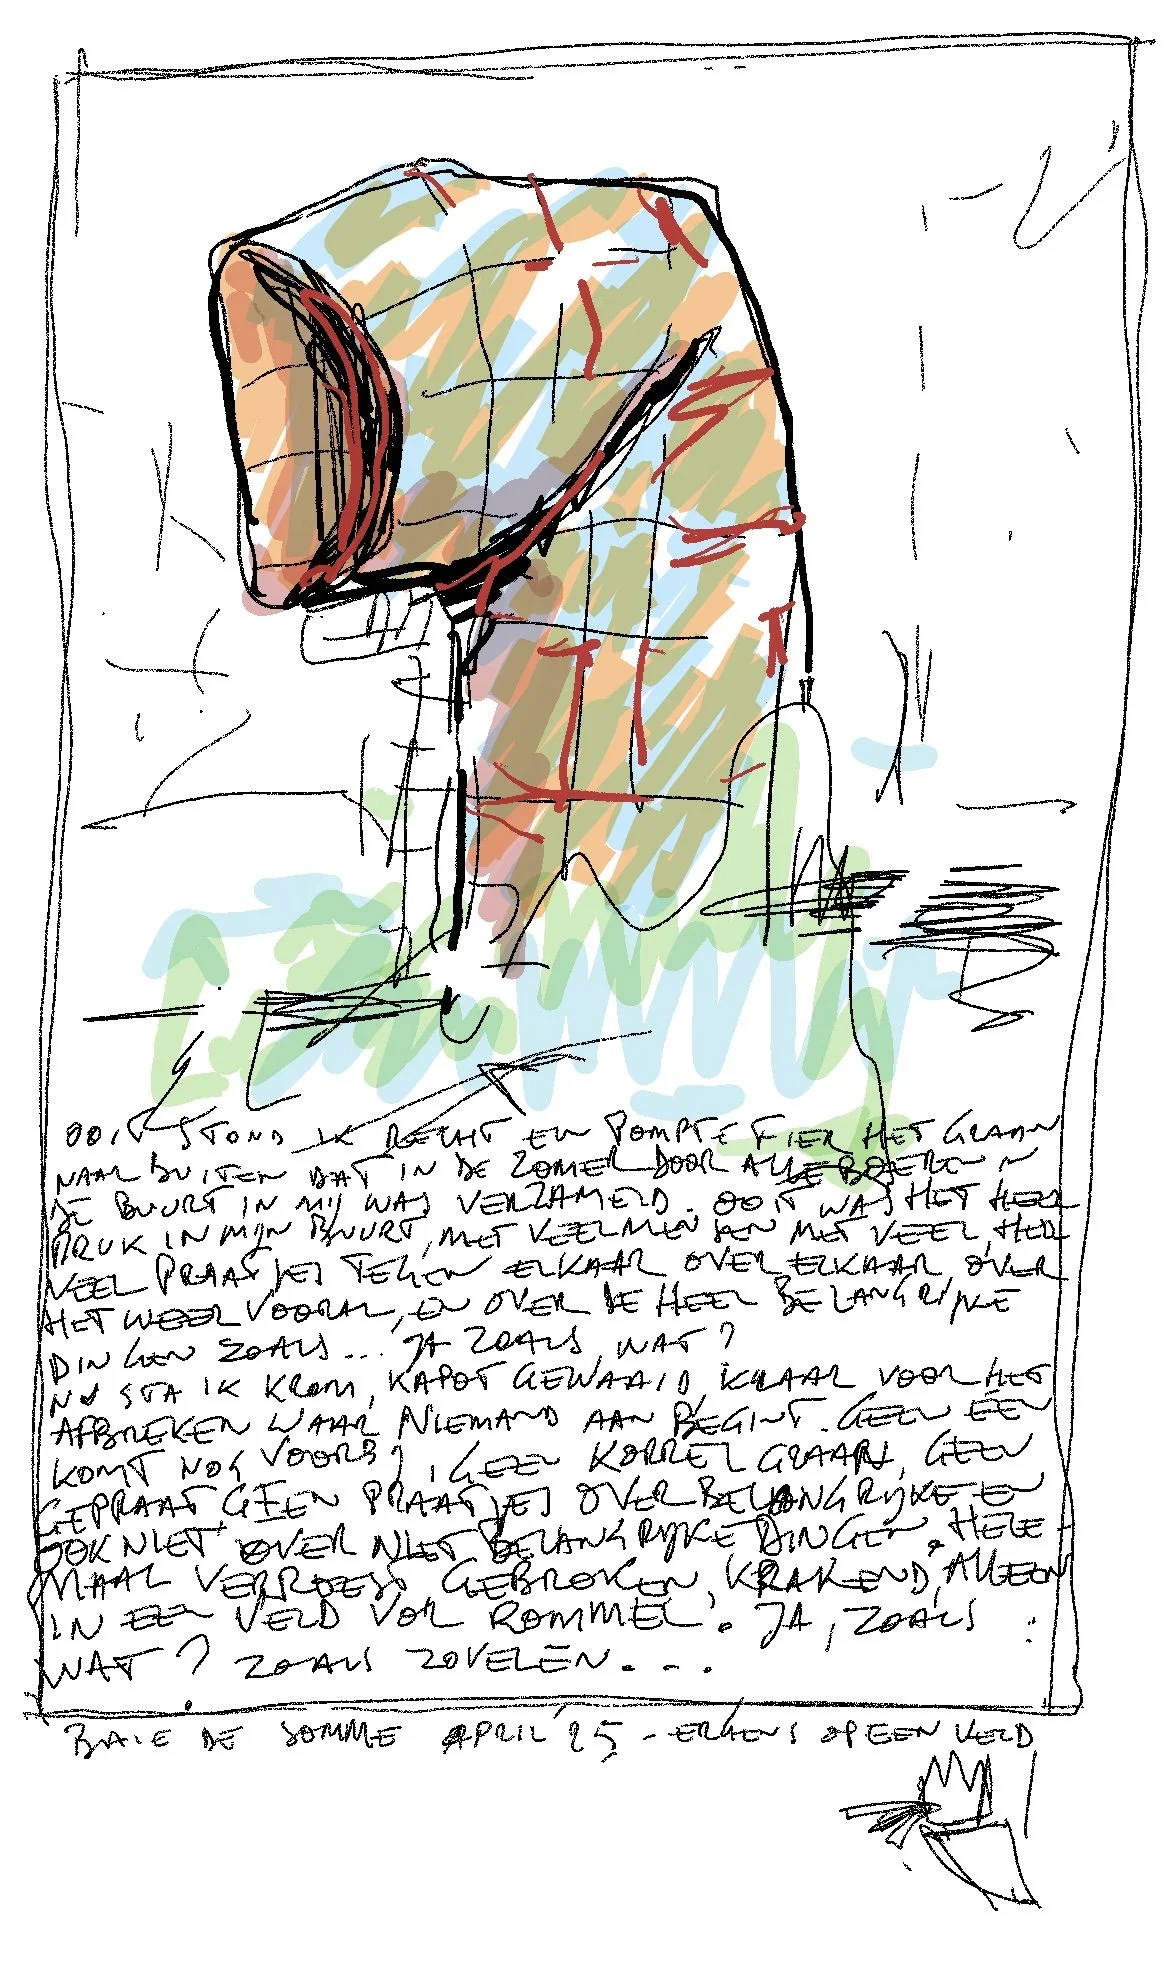 OOIT STOND IK RECHT EN POMPTE FIER HET GRAAN
NAAR BUITEN DAT IN DE ZOMER DOOR ALLE BOEREN IN
DE BUURT IN MIJ WAS VERZAMELD. OOIT WAS HET HEEL
DRUK IN MIJN BUURT, MET VEEL MENSEN MET VEEL, HEEL
VEEL PRAATJES TEGEN ELKAAR OVER ELKAAR OVER
HET WEER VOORAL, EN OVER DE HEEL BELANGRIJKE
DINGEN ZOALS... JA ZOALS WAT?
NU STA IK KROM, KAPOT GEWAAID, KLAAR VOOR HET
AFBREKEN WAAR NIEMAND AAN BEGINT. GEEN EEN
KOMT NOG VOORBIJ, GEEN KORREL GRAAN, GEEN
GEPRAAT, GEEN PRAATJES OVER BELANGRIJKE EN
OOK NIET OVER NIET BELANGRIJKE DINGEN. HELE-
MAAL VERROEST GEBROKEN, KRAKEND, ALLEEN
IN EEN VELD VOL ROMMEL. JA, ZOALS
WAT? ZOALS ZOVELEN...
BAIE DE SOMME APRIL '25 - ERGENS OP EEN VELD